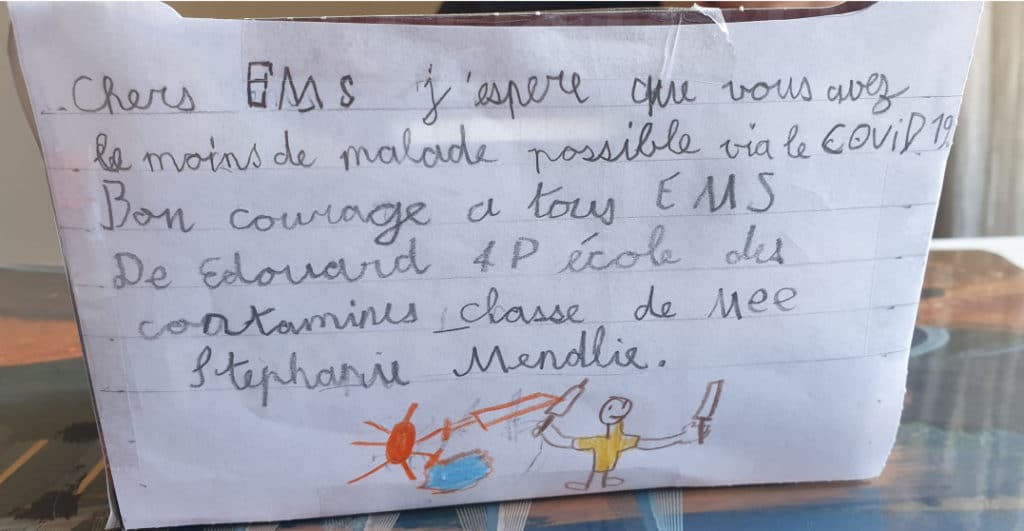 Chers EMS j'espere que vous avez
le moins de malade possible via le COViD 19.
Bon courage a tous EMS
De Edouard 4P école des
contamines classe de Mee
Stephanie Mendlie.